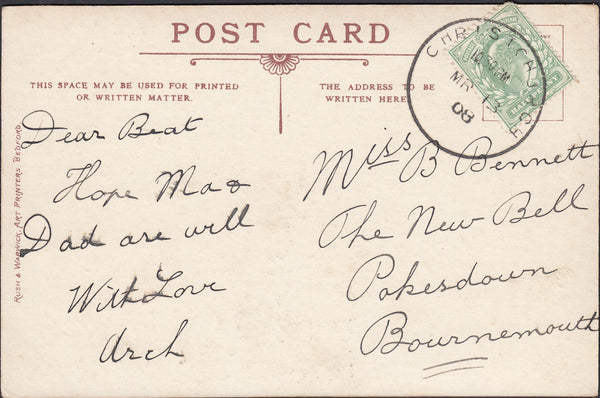 POST CARD
THIS SPACE MAY BE USED FOR PRINTED
OR WRITTEN MATTER.
THE ADDRESS TO BE
WRITTEN HERE
CHRISTCHURCH
MR 13
08
Dear Beat
Hope Ma &
Dad are will
With Love
Arch
Miss B Bennett
The New Bell
Pokesdown
Bournemouth
RUSH & WARWICK, ART PRINTERS BEDFORD.